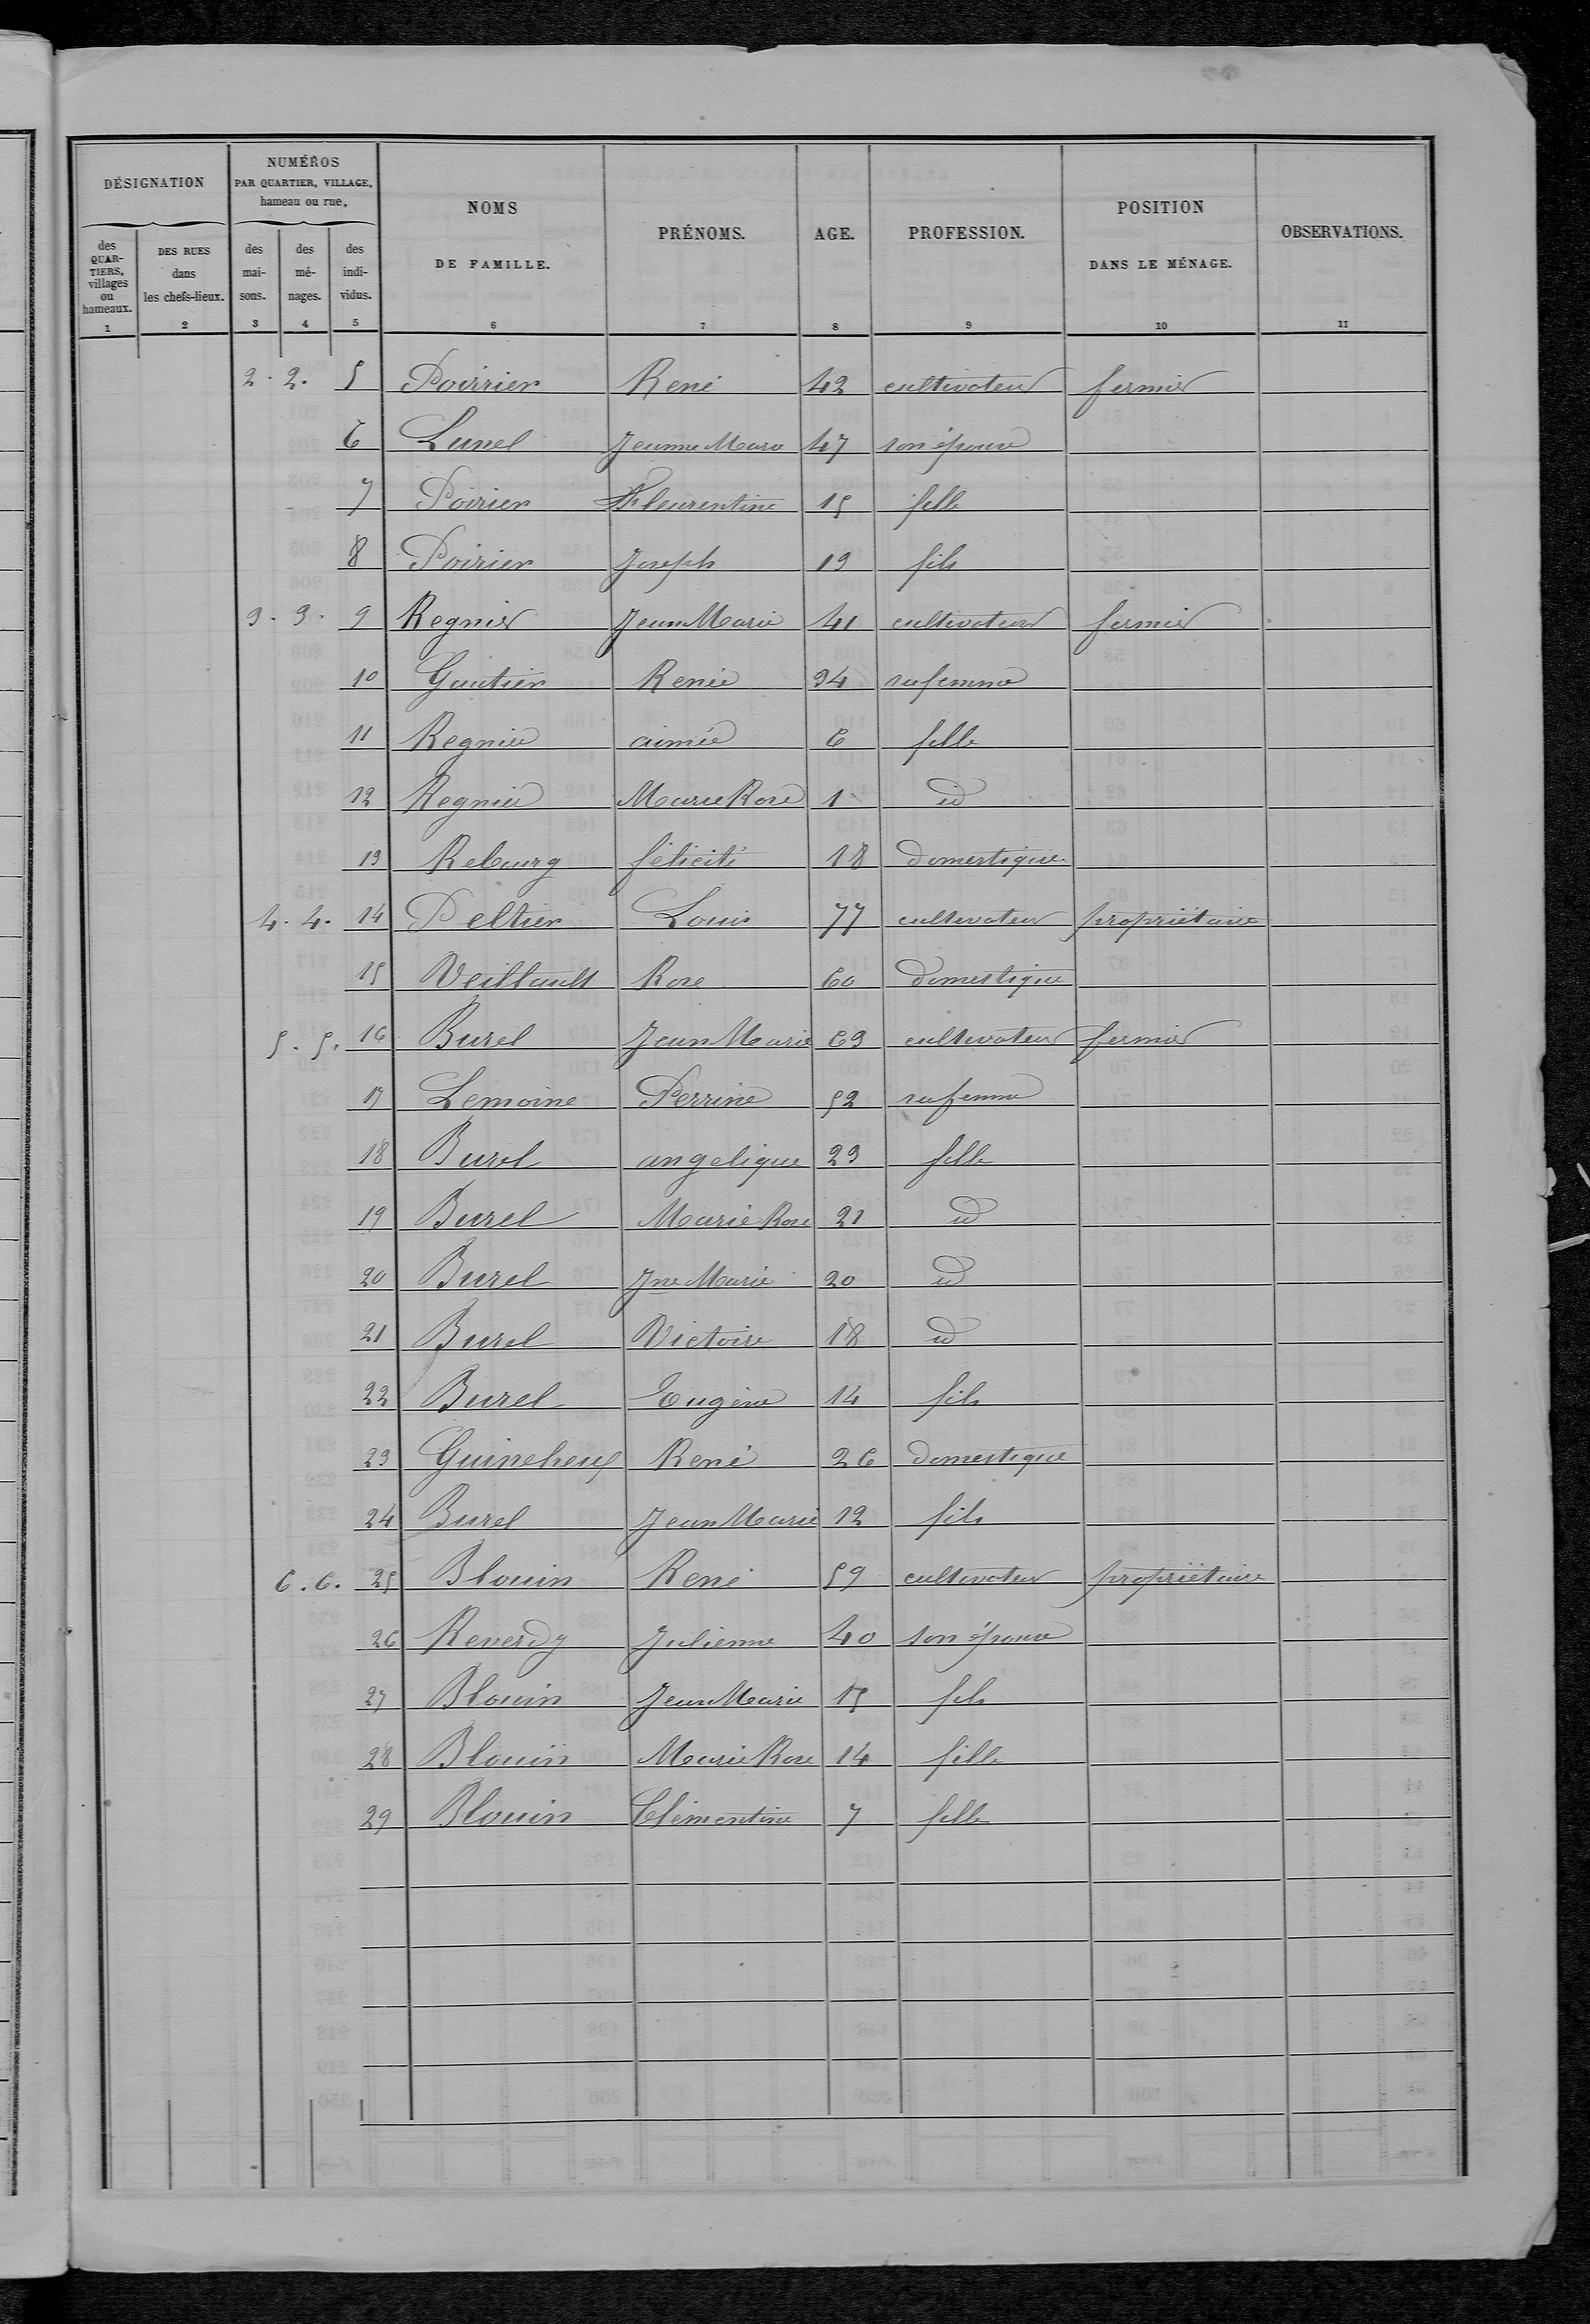 DÉSIGNATION NUMÉROS PAR QUARTIER, VILLAGE, hameau ou rue, NOMS DE FAMILLE. PRÉNOMS. AGE. PROFESSION. POSITION DANS LE MÉNAGE. OBSERVATIONS.
des QUARTIERS, villages ou hameaux. DES RUES dans les chefs-lieux. des maisons. des ménages. des individus.
1 2 3 4 5 6 7 8 9 10 11
2. 2. 5 Poirrier René 42 cultivateur fermier
6 Lunel Jeanne Marie 47 son épouse
7 Poirier Fleurentine 15 fille
8 Poirier Joseph 13 fils
3. 3. 9 Regnier Jean Marie 41 cultivateur fermier
10 Gautier Renée 34 sa femme
11 Regnier aimée 6 fille
12 Regnier Marie Rose 1 id
13 Rebourg félicité 18 domestique
4. 4. 14 Peltier Louis 77 cultivateur propriétaire
15 Veillault Rose 60 domestique
5. 5. 16 Burel Jean Marie 63 cultivateur fermier
17 Lemoine Perrine 52 sa femme
18 Burel angelique 23 fille
19 Burel Marie Rose 21 id
20 Burel Jne Marie 20 id
21 Burel Victoire 18 id
22 Burel Eugène 14 fils
23 Guineheux René 26 domestique
24 Burel Jean Marie 12 fils
6. 6. 25 Blouin René 59 cultivateur propriétaire
26 Reverdy Julienne 40 son épouse
27 Blouin Jean Marie 15 fils
28 Blouin Marie Rose 14 fille
29 Blouin Clémentine 7 fille